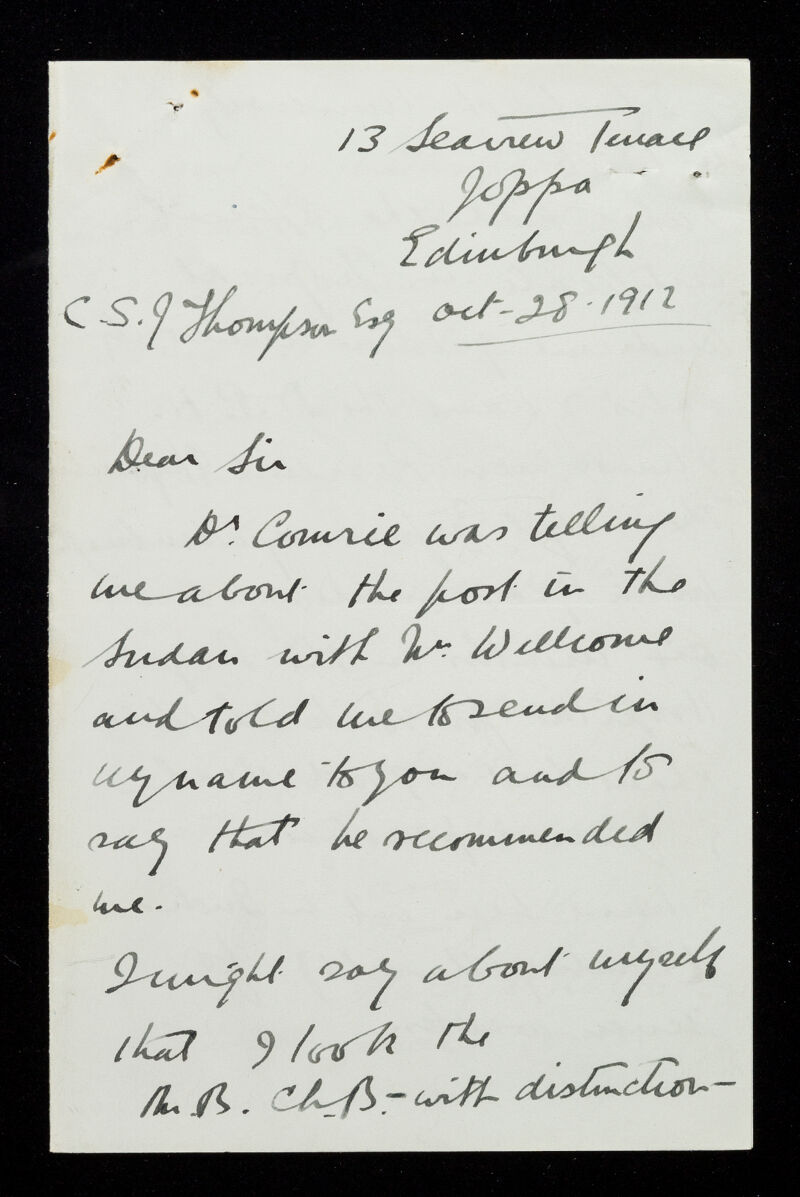 13 Seaview Terrace
Joppa
Edinburgh
C S. J Thompson Esq Oct-28.1912
Dear Sir
Dr. Comrie was telling
me about the post in the
Sudan with Mr. Wellcome
and told me to send in
my name to you and to
say that he recommended
me.
I might say about myself
that I took the
M.B. Ch.B.- with distinction-